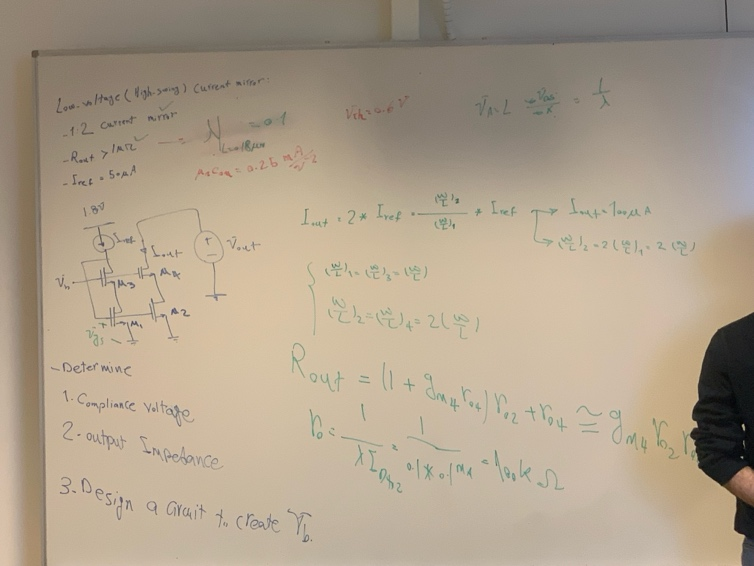 Low-voltage (High-swing) current mirror:
- 1:2 current mirror
- Rout > 1MΩ
- Iref = 50μA
λ L=0.18μm = 0.1
Vth = 0.6 V
μnCox = 0.25 mA/V²
VA = L = 1/λ
1.8V
Iref
Iout
Vout
Vb
M3
M4
M1
M2
Vgs
Iout = 2 * Iref = (W/L)2 / (W/L)1 * Iref → Iout = 100μA
→ (W/L)2 = 2(W/L)1 = 2(W/L)
(W/L)1 = (W/L)3 = (W/L)
(W/L)2 = (W/L)4 = 2(W/L)
Rout = (1 + gm4 ro4) ro2 + ro4 ≅ gm4 ro2
ro = 1 / λ ID4,2 = 1 / 0.1 * 0.1 mA = 100k Ω
- Determine
1. Compliance voltage
2- output Impedance
3. Design a circuit to create Vb.